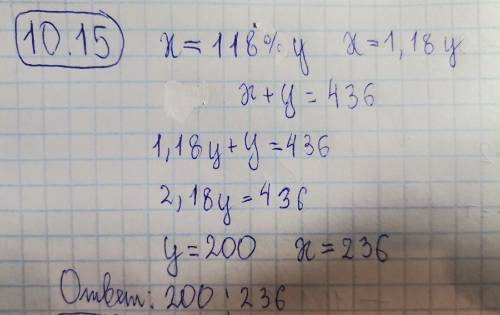 10.15 x = 118% y x = 1,18y
x + y = 436
1,18y + y = 436
2,18y = 436
y = 200 x = 236
Ответ: 200; 236